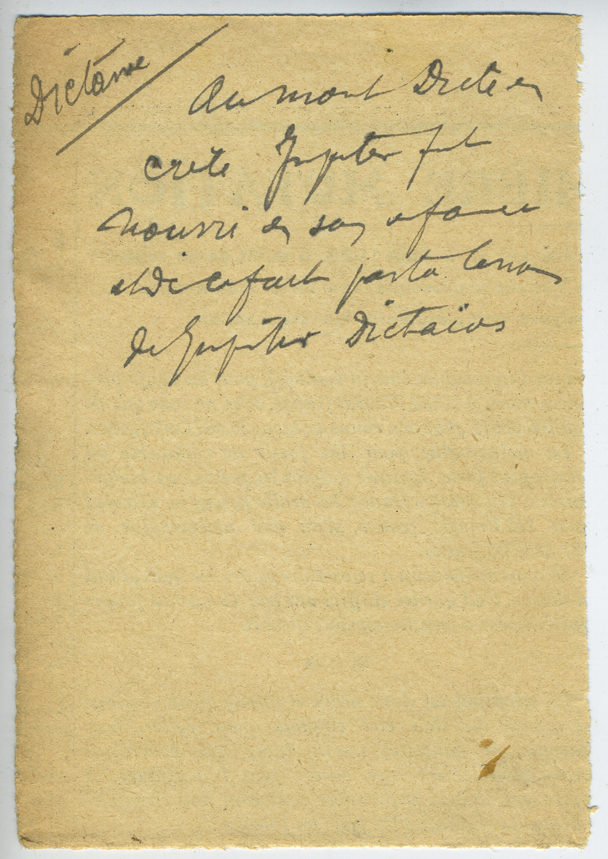 Dictame
Au mont Dicte en
crete Jupiter fut
nourri en son enfance
et de ce fait porta le nom
de Jupiter Dictaïos